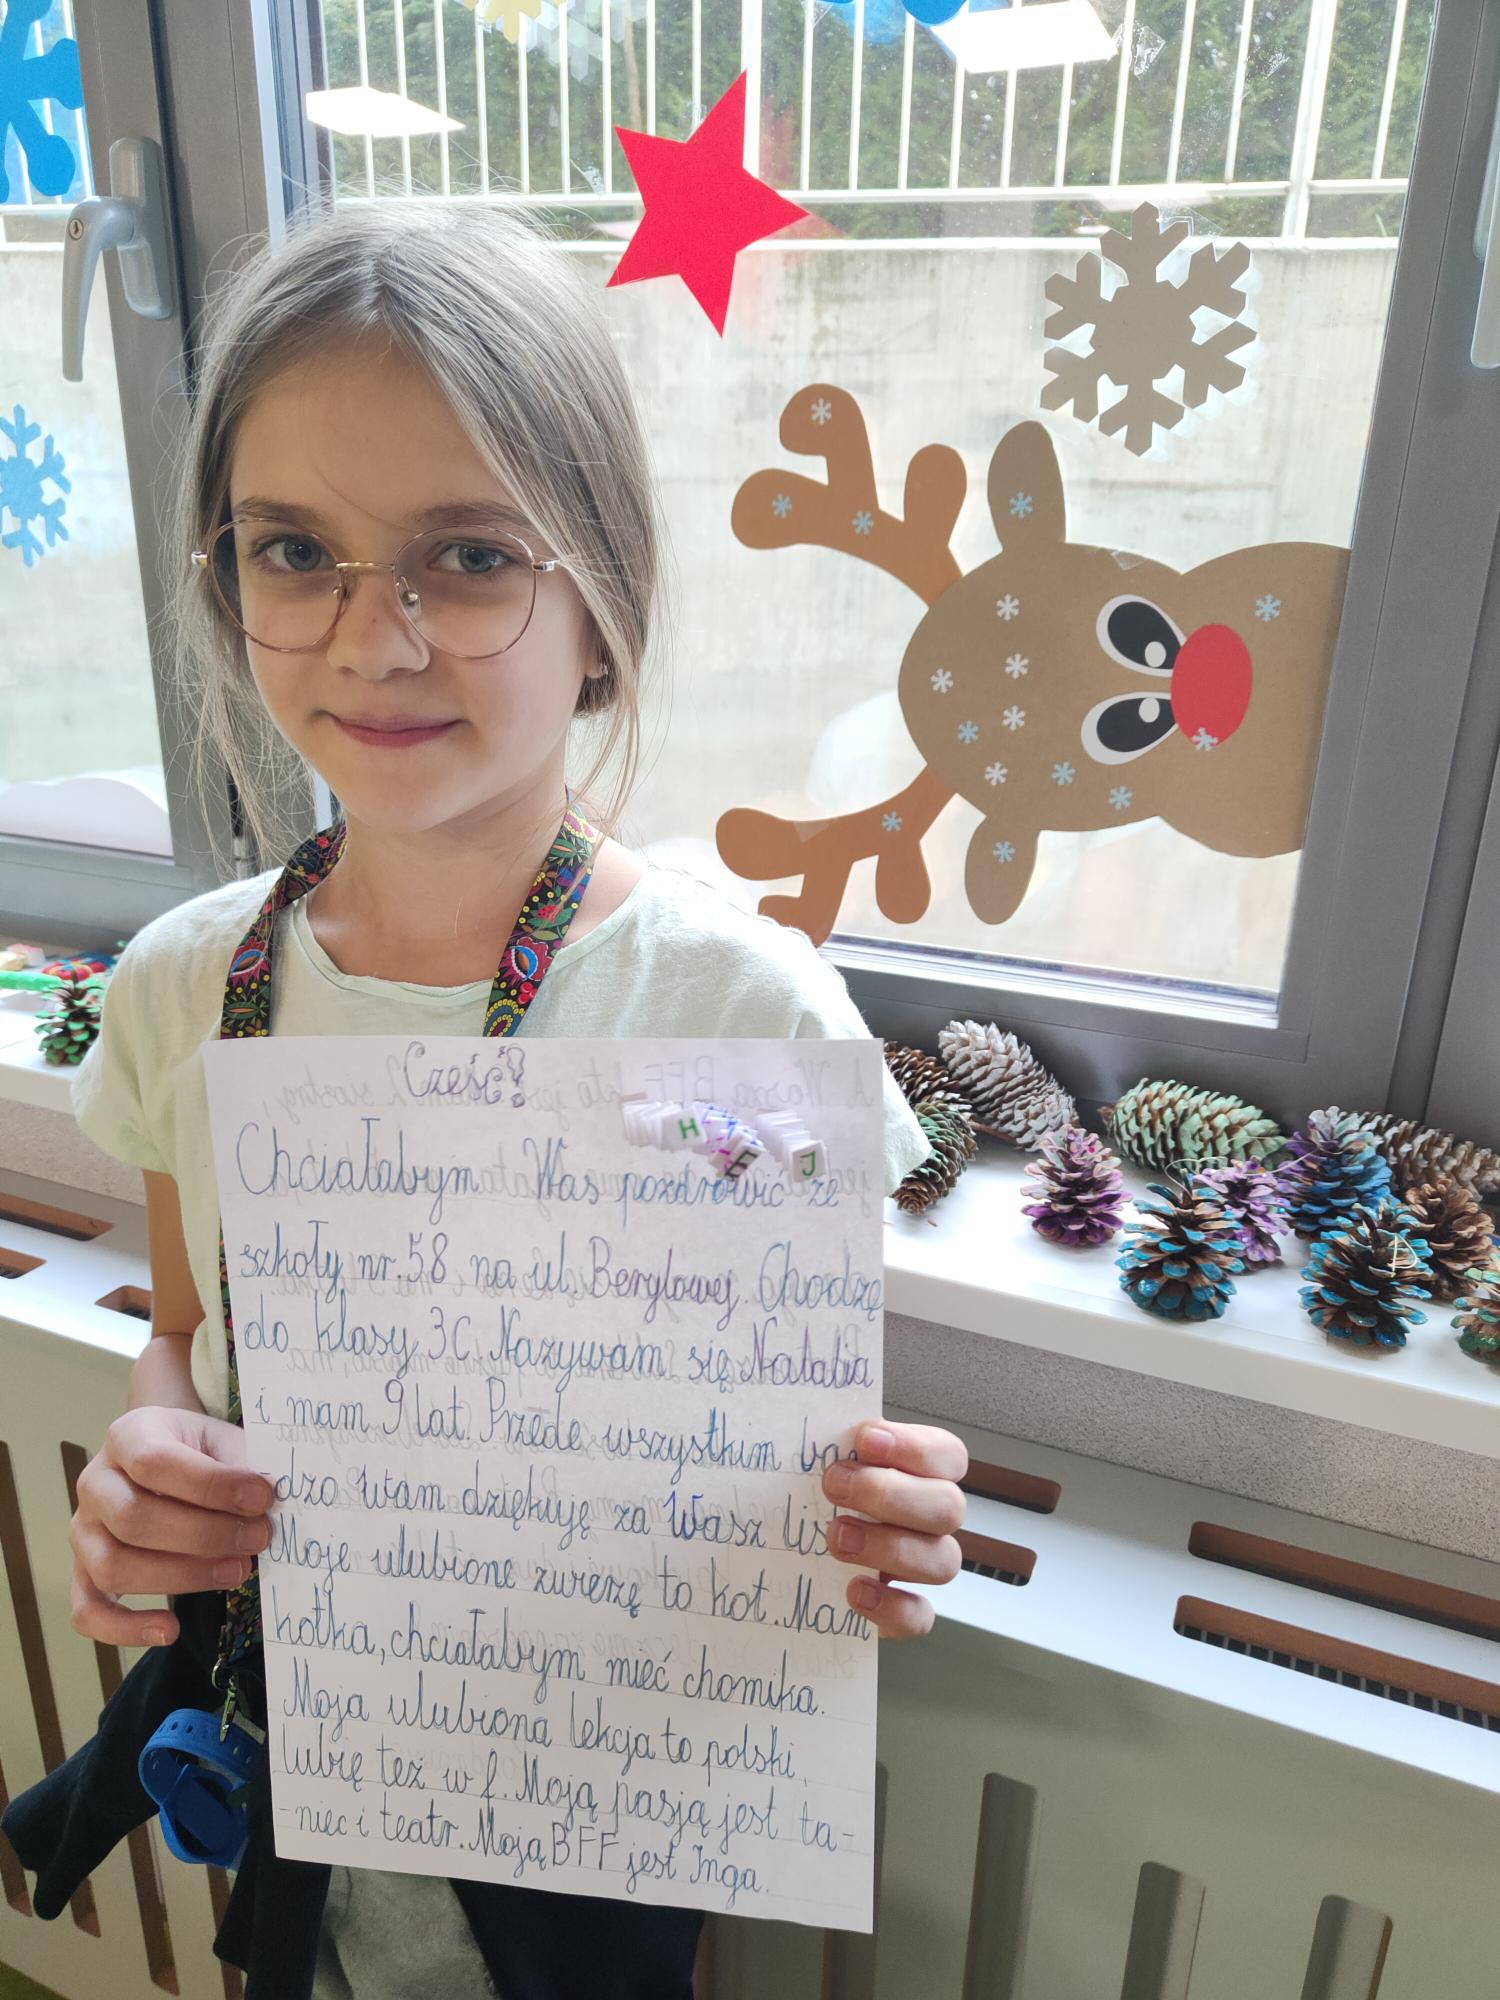 Cześć!
H E J
Chciałabym Was pozdrowić ze
szkoły nr. 58 na ul. Berylowej. Chodzę
do klasy 3C. Nazywam się Natalia
i mam 9 lat. Przede wszystkim ba
-dzo Wam dziękuję za Wasz list
Moje ulubione zwierzę to kot. Mam
kotka, chciałabym mieć chomika.
Moja ulubiona lekcja to polski,
lubię też w f. Moją pasją jest ta-
-niec i teatr. Moją BFF jest Inga.